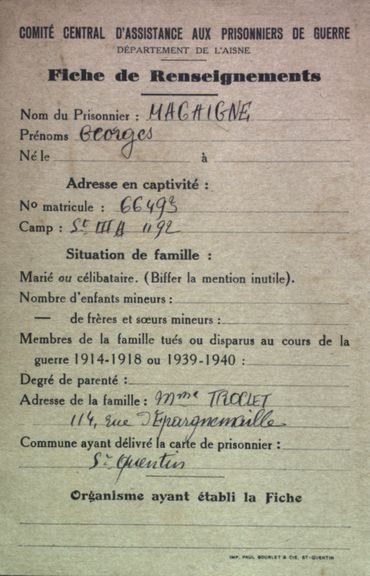 COMITÉ CENTRAL D'ASSISTANCE AUX PRISONNIERS DE GUERRE
DÉPARTEMENT DE L'AISNE
Fiche de Renseignements
Nom du Prisonnier : MAGAIGNE
Prénoms Georges
Né le à
Adresse en captivité :
No matricule : 66493
Camp : St III A 1192
Situation de famille :
Marié ou célibataire. (Biffer la mention inutile).
Nombre d'enfants mineurs :
— de frères et sœurs mineurs :
Membres de la famille tués ou disparus au cours de la
guerre 1914-1918 ou 1939-1940 :
Degré de parenté :
Adresse de la famille : Mme TROCLET
114, rue d'Epargnemaille
Commune ayant délivré la carte de prisonnier :
St Quentin
Organisme ayant établi la Fiche
IMP. PAUL BOURLET & CIE, ST-QUENTIN